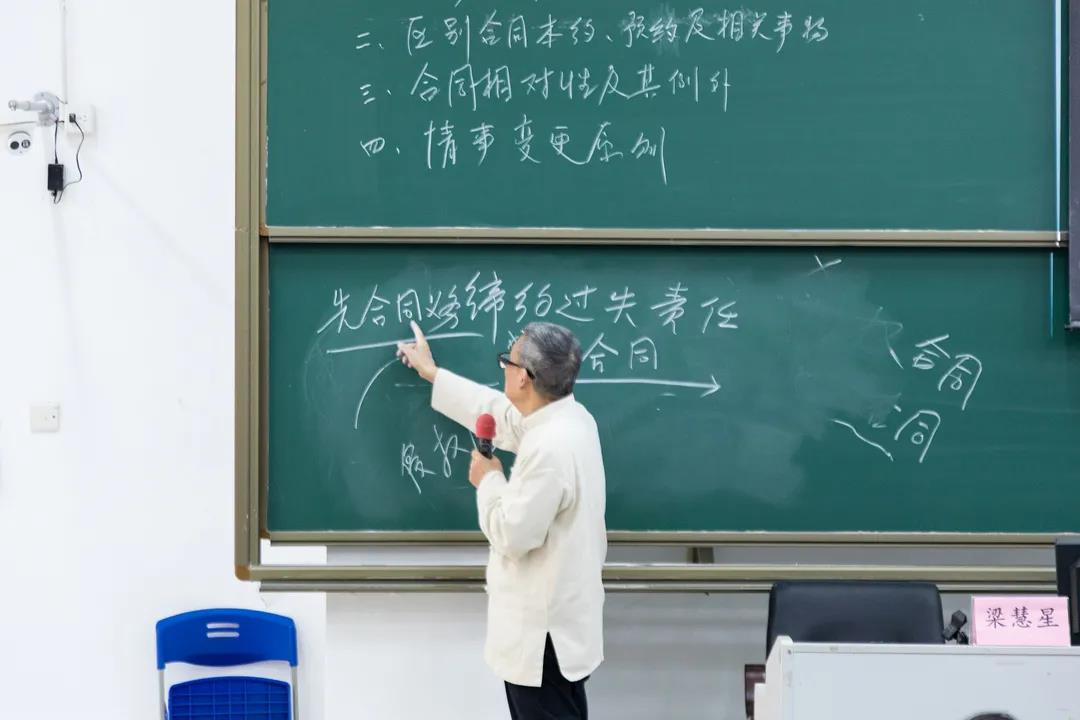 二、区别合同本约、预约及相关事物
三、合同相对性及其例外
四、情事变更原则
先合同义务 缔约过失责任
合同
股权
合同
合同
梁慧星